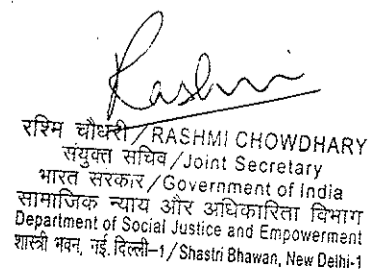 Rashmi
रश्मि चौधरी/RASHMI CHOWDHARY
संयुक्त सचिव/Joint Secretary
भारत सरकार/Government of India
सामाजिक न्याय और अधिकारिता विभाग
Department of Social Justice and Empowerment
शास्त्री भवन, नई दिल्ली-1/Shastri Bhawan, New Delhi-1